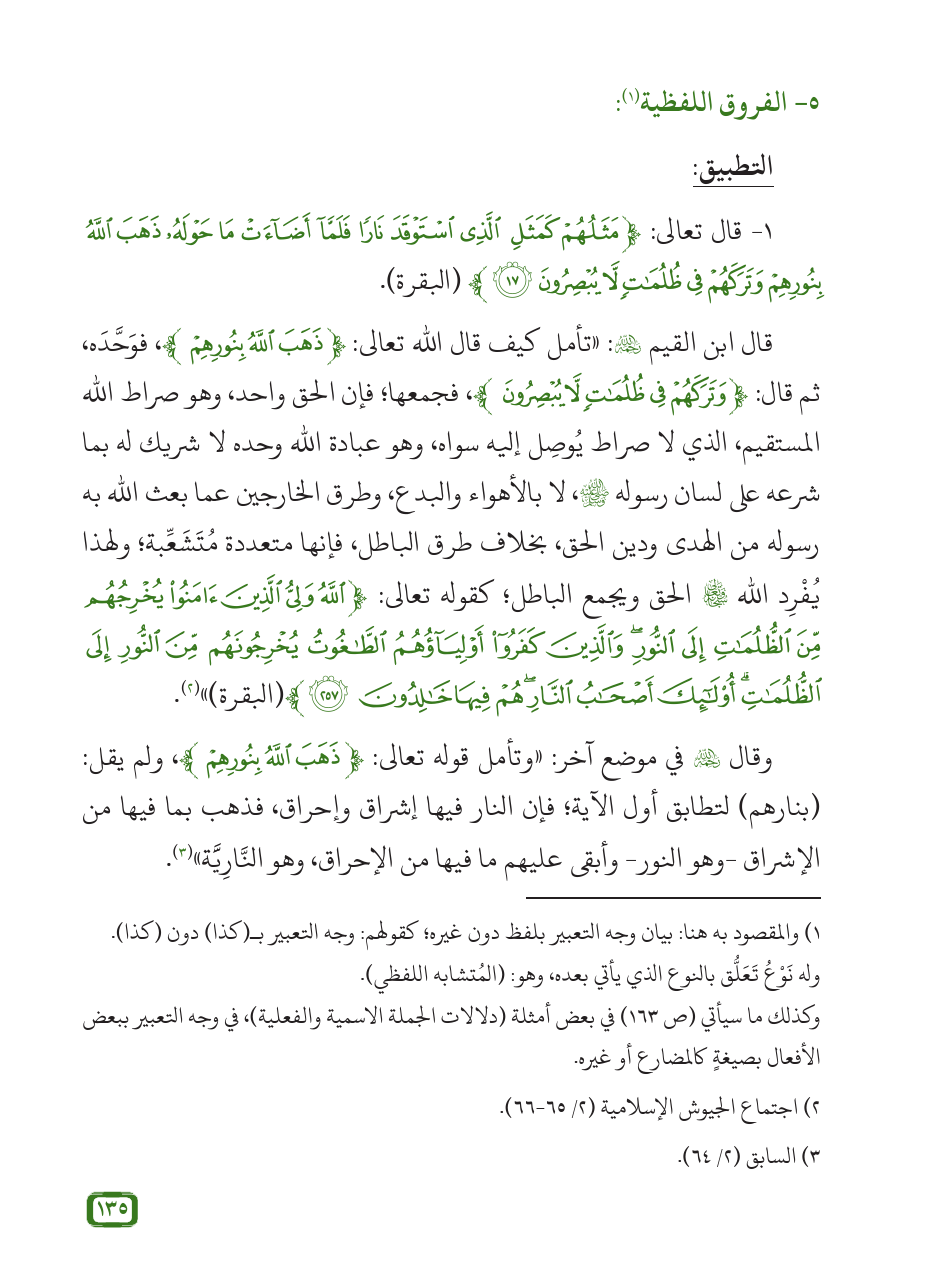 ٥- الفروق اللفظية(١):
التطبيق:
١- قال تعالى: ﴿مَثَلُهُمۡ كَمَثَلِ ٱلَّذِي ٱسۡتَوۡقَدَ نَارٗا فَلَمَّآ أَضَآءَتۡ مَا حَوۡلَهُۥ ذَهَبَ ٱللَّهُ
بِنُورِهِمۡ وَتَرَكَهُمۡ فِي ظُلُمَٰتٖ لَّا يُبۡصِرُونَ ١٧﴾ (البقرة).
قال ابن القيم رحمه الله: «تأمل كيف قال الله تعالى: ﴿ذَهَبَ ٱللَّهُ بِنُورِهِمۡ﴾، فوَحَّدَه،
ثم قال: ﴿وَتَرَكَهُمۡ فِي ظُلُمَٰتٖ لَّا يُبۡصِرُونَ﴾، فجمعها؛ فإن الحق واحد، وهو صراط الله
المستقيم، الذي لا صراط يُوصِل إليه سواه، وهو عبادة الله وحده لا شريك له بما
شرعه على لسان رسوله ﷺ، لا بالأهواء والبدع، وطرق الخارجين عما بعث الله به
رسوله من الهدى ودين الحق، بخلاف طرق الباطل، فإنها متعددة مُتَشَعِّبة؛ ولهذا
يُفْرِد الله الحق ويجمع الباطل؛ كقوله تعالى: ﴿ٱللَّهُ وَلِيُّ ٱلَّذِينَ ءَامَنُواْ يُخۡرِجُهُم
مِّنَ ٱلظُّلُمَٰتِ إِلَى ٱلنُّورِۖ وَٱلَّذِينَ كَفَرُوٓاْ أَوۡلِيَآؤُهُمُ ٱلطَّٰغُوتُ يُخۡرِجُونَهُم مِّنَ ٱلنُّورِ إِلَى
ٱلظُّلُمَٰتِۗ أُوْلَٰٓئِكَ أَصۡحَٰبُ ٱلنَّارِۖ هُمۡ فِيهَا خَٰلِدُونَ ٢٥٧﴾ (البقرة)»(٢).
وقال رحمه الله في موضع آخر: «وتأمل قوله تعالى: ﴿ذَهَبَ ٱللَّهُ بِنُورِهِمۡ﴾، ولم يقل:
(بنارهم) لتطابق أول الآية؛ فإن النار فيها إشراق وإحراق، فذهب بما فيها من
الإشراق -وهو النور- وأبقى عليهم ما فيها من الإحراق، وهو النَّارِيَّة»(٣).
١) والمقصود به هنا: بيان وجه التعبير بلفظ دون غيره؛ كقولهم: وجه التعبير بـ(كذا) دون (كذا).
وله نَوْعُ تَعَلُّق بالنوع الذي يأتي بعده، وهو: (المُتشابه اللفظي).
وكذلك ما سيأتي (ص ١٦٣) في بعض أمثلة (دلالات الجملة الاسمية والفعلية)، في وجه التعبير ببعض
الأفعال بصيغةٍ كالمضارع أو غيره.
٢) اجتماع الجيوش الإسلامية (٢/ ٦٥-٦٦).
٣) السابق (٢/ ٦٤).
١٣٥